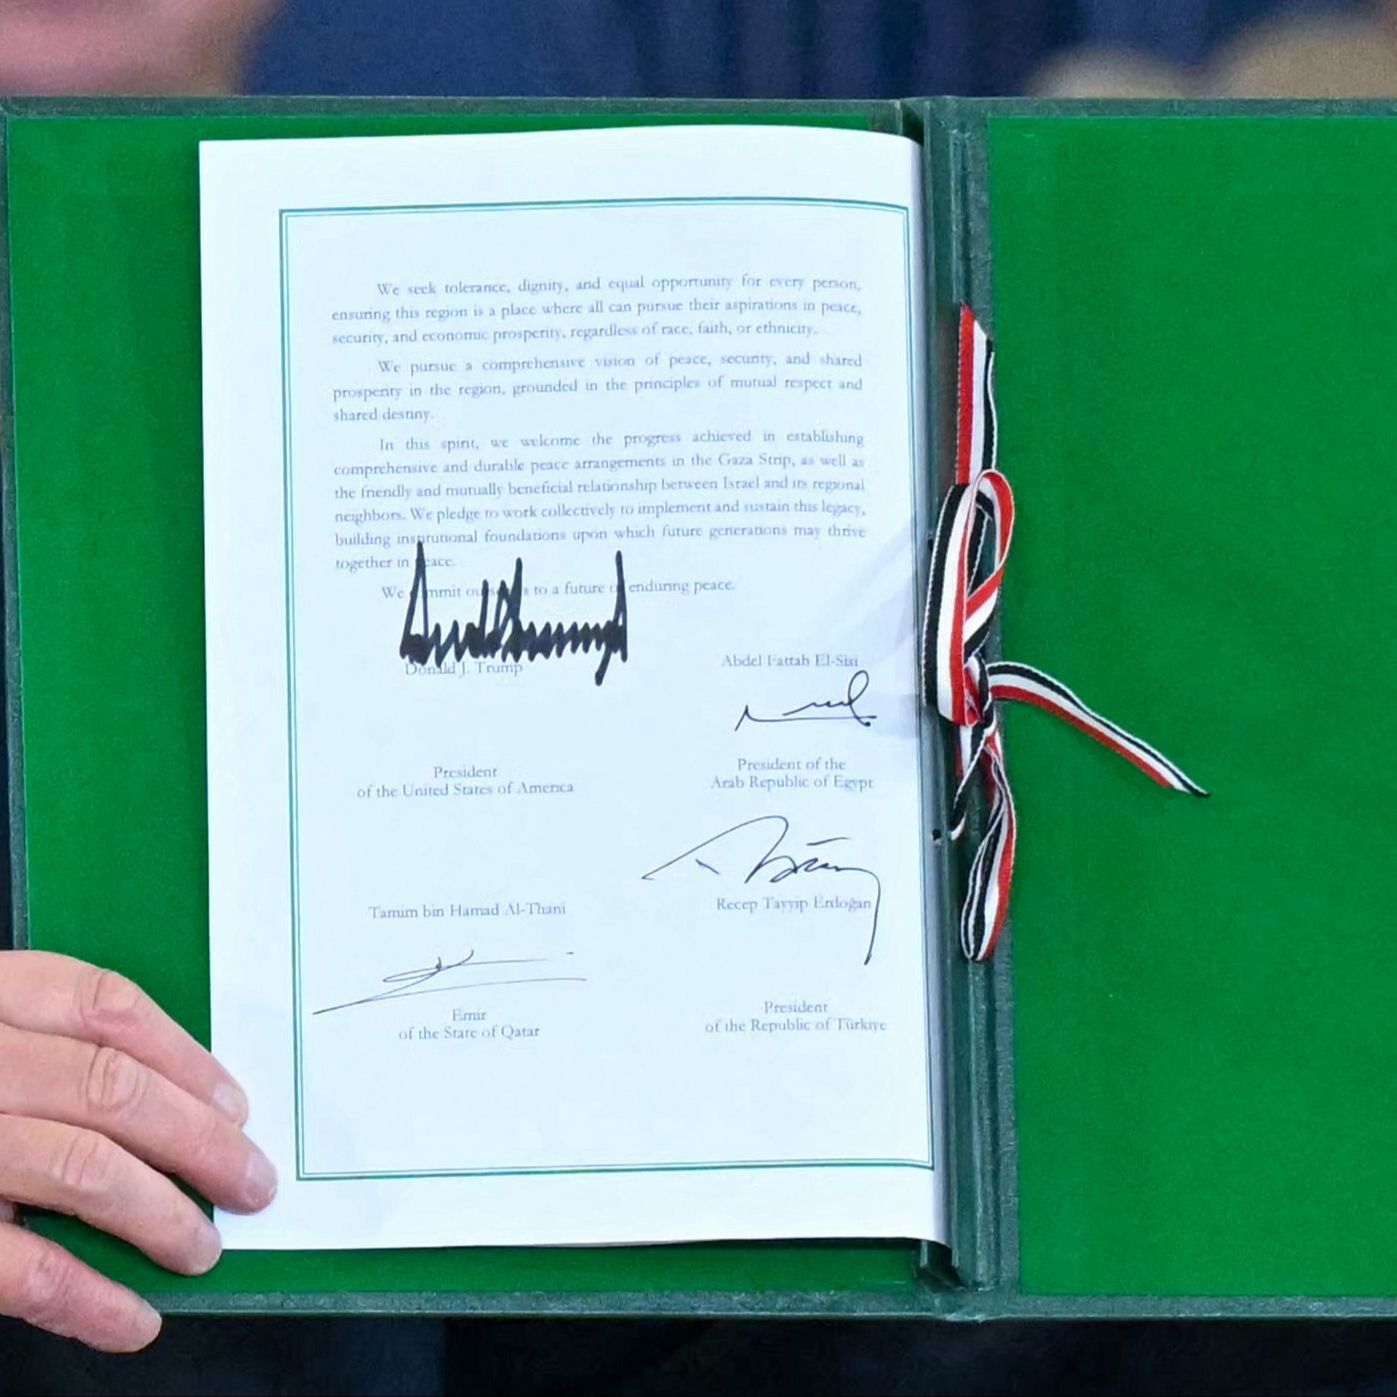 We seek tolerance, dignity, and equal opportunity for every person,
ensuring this region is a place where all can pursue their aspirations in peace,
security, and economic prosperity, regardless of race, faith, or ethnicity.
We pursue a comprehensive vision of peace, security, and shared
prosperity in the region, grounded in the principles of mutual respect and
shared destiny.
In this spirit, we welcome the progress achieved in establishing
comprehensive and durable peace arrangements in the Gaza Strip, as well as
the friendly and mutually beneficial relationship between Israel and its regional
neighbors. We pledge to work collectively to implement and sustain this legacy,
building institutional foundations upon which future generations may thrive
together in peace.
We commit ourselves to a future of enduring peace.
Donald J. Trump
Abdel Fattah El-Sisi
President
of the United States of America
President of the
Arab Republic of Egypt
Tamim bin Hamad Al-Thani
Recep Tayyip Erdoğan
Emir
of the State of Qatar
President
of the Republic of Türkiye